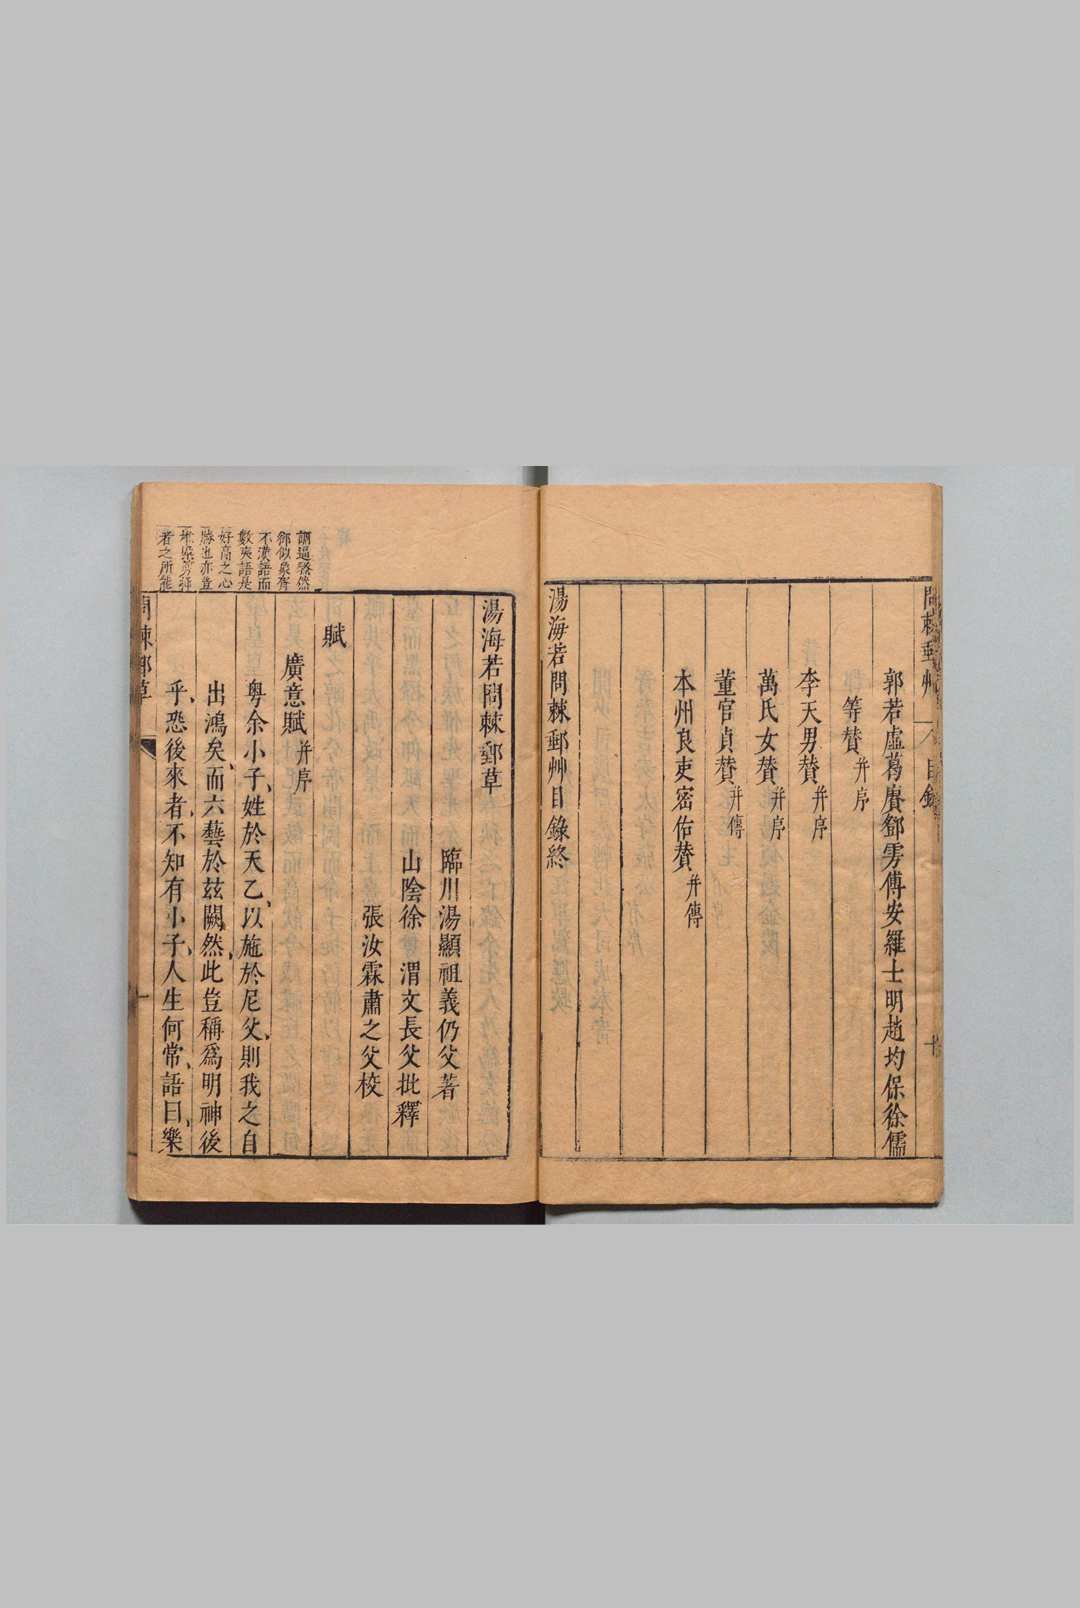 問棘郵艸
目錄
十
郭若虛葛賡鄧雱傅安羅士明趙均保徐儒
等贊并序
李天男贊并序
萬氏女贊并序
董官貞贊并傳
本州良吏密佑贊并傳
湯海若問棘郵艸目錄終
湯海若問棘郵草
臨川湯顯祖義仍父著
山陰徐渭文長父批釋
張汝霖肅之父校
賦
廣意賦并序
粤余小子、姓於天乙、以施於尼父、則我之自
出鴻矣、而六藝於茲闕然、此豈稱爲明神後
乎、恐後來者、不知有小子、人生何常、語曰、樂
不漢語而
數夷語是
好高之心
勝也亦豈
者之所能
問棘郵草
一